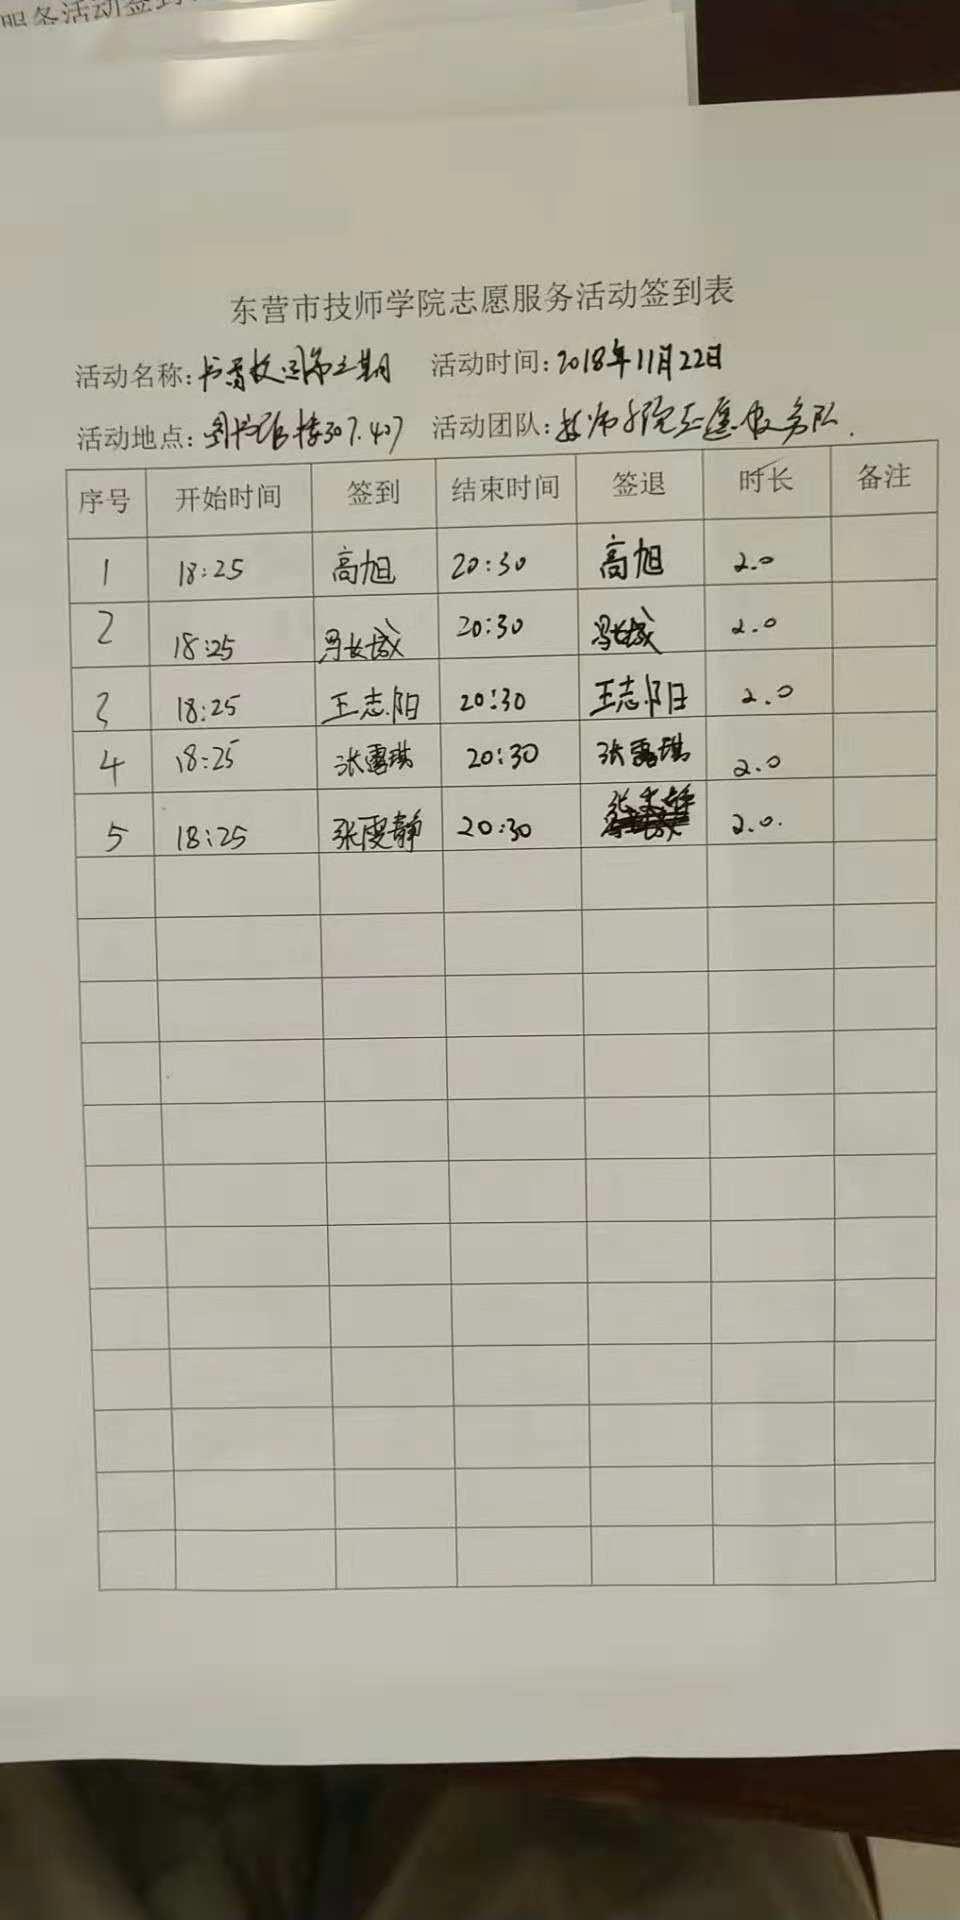 服务活动签到
东营市技师学院志愿服务活动签到表
活动名称:书香校园第三期 活动时间:2018年11月22日
活动地点:图书馆楼307.407 活动团队:技师学院志愿服务队.
序号 开始时间 签到 结束时间 签退 时长 备注
1 18:25 高旭 20:30 高旭 2.0
2 18:25 冯长城 20:30 冯长城 2.0
3 18:25 王志阳 20:30 王志阳 2.0
4 18:25 张露琪 20:30 张露琪 2.0
5 18:25 张雯静 20:30 2.0.